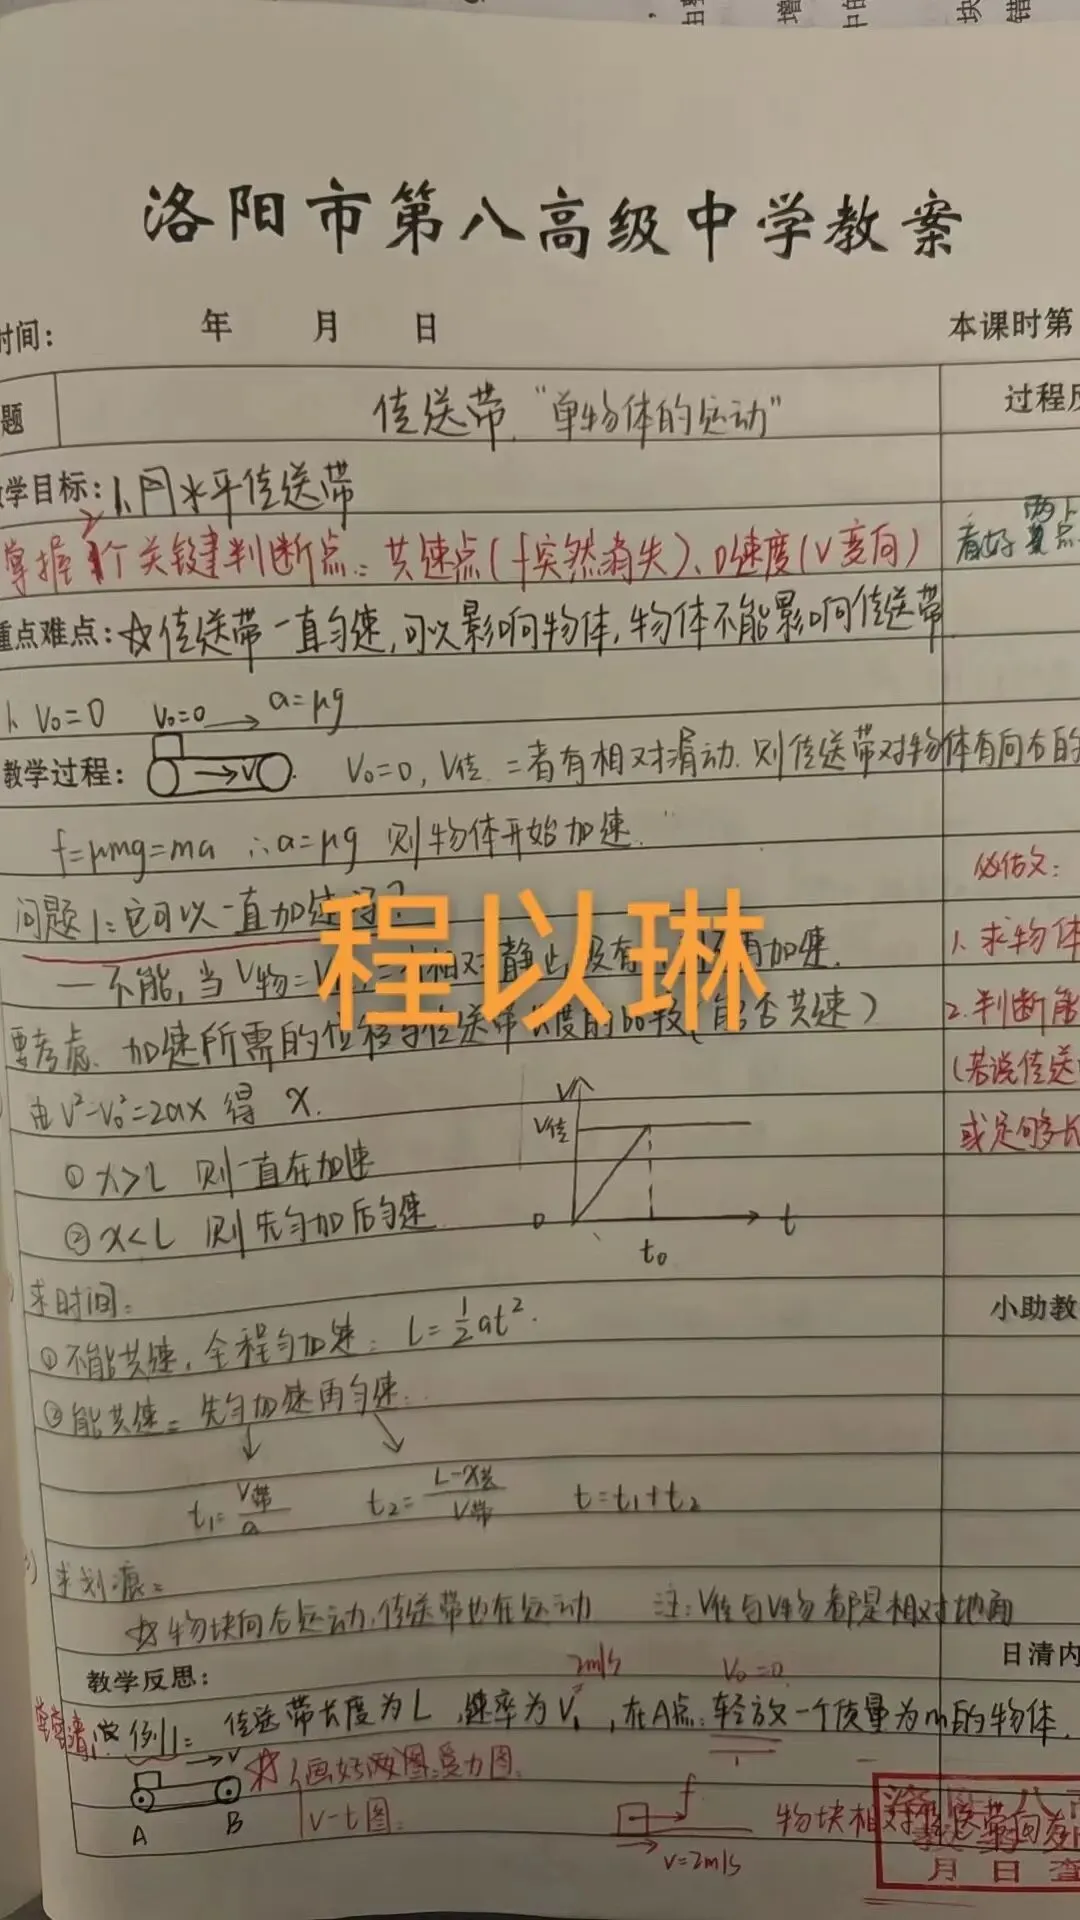 洛阳市第八高级中学教案
时间: 年 月 日 本课时第
题 传送带 “单物体的运动” 过程反
教学目标: 1. 水平传送带
掌握 个关键判断点: 共速点(f突然消失)、0速度(V变向) 看好两个
重点难点: ☆传送带一直匀速,可以影响物体,物体不能影响传送带
1. V₀=0 V₀=0 a=μg
教学过程: →V V₀=0, V传 二者有相对滑动. 则传送带对物体有向右的
f=μmg=ma ∴a=μg 则物体开始加速.
问题1:它可以一直加速吗?
程以琳
一不能, 当V物=V 相对静止,没有 再加速.
要考虑. 加速所需的位移与传送带长度的比较(能否共速)
由V²-V₀²=2ax 得 x.
① x>L 则一直在加速
② x<L 则先匀加后匀速
V
V传
0
t₀
t
1. 求物体
2. 判断能
(若说传送
或足够长
求时间: 小助教
①不能共速, 全程匀加速: L=½at².
②能共速= 先匀加速再匀速.
t₁=V带/a t₂=L-x共/V带 t=t₁+t₂
求划痕=
☆物块向右运动,传送带也在运动 注:V传与V物都是相对地面
日清内
教学反思: 2m/s V₀=0
例1: 传送带长度为L ,速率为V₁,在A点:轻放一个质量为m的物体.
V
A B
1画好两图:受力图.
V-t图.
f
V=2m/s
物块相对传送带向左
月 日 查